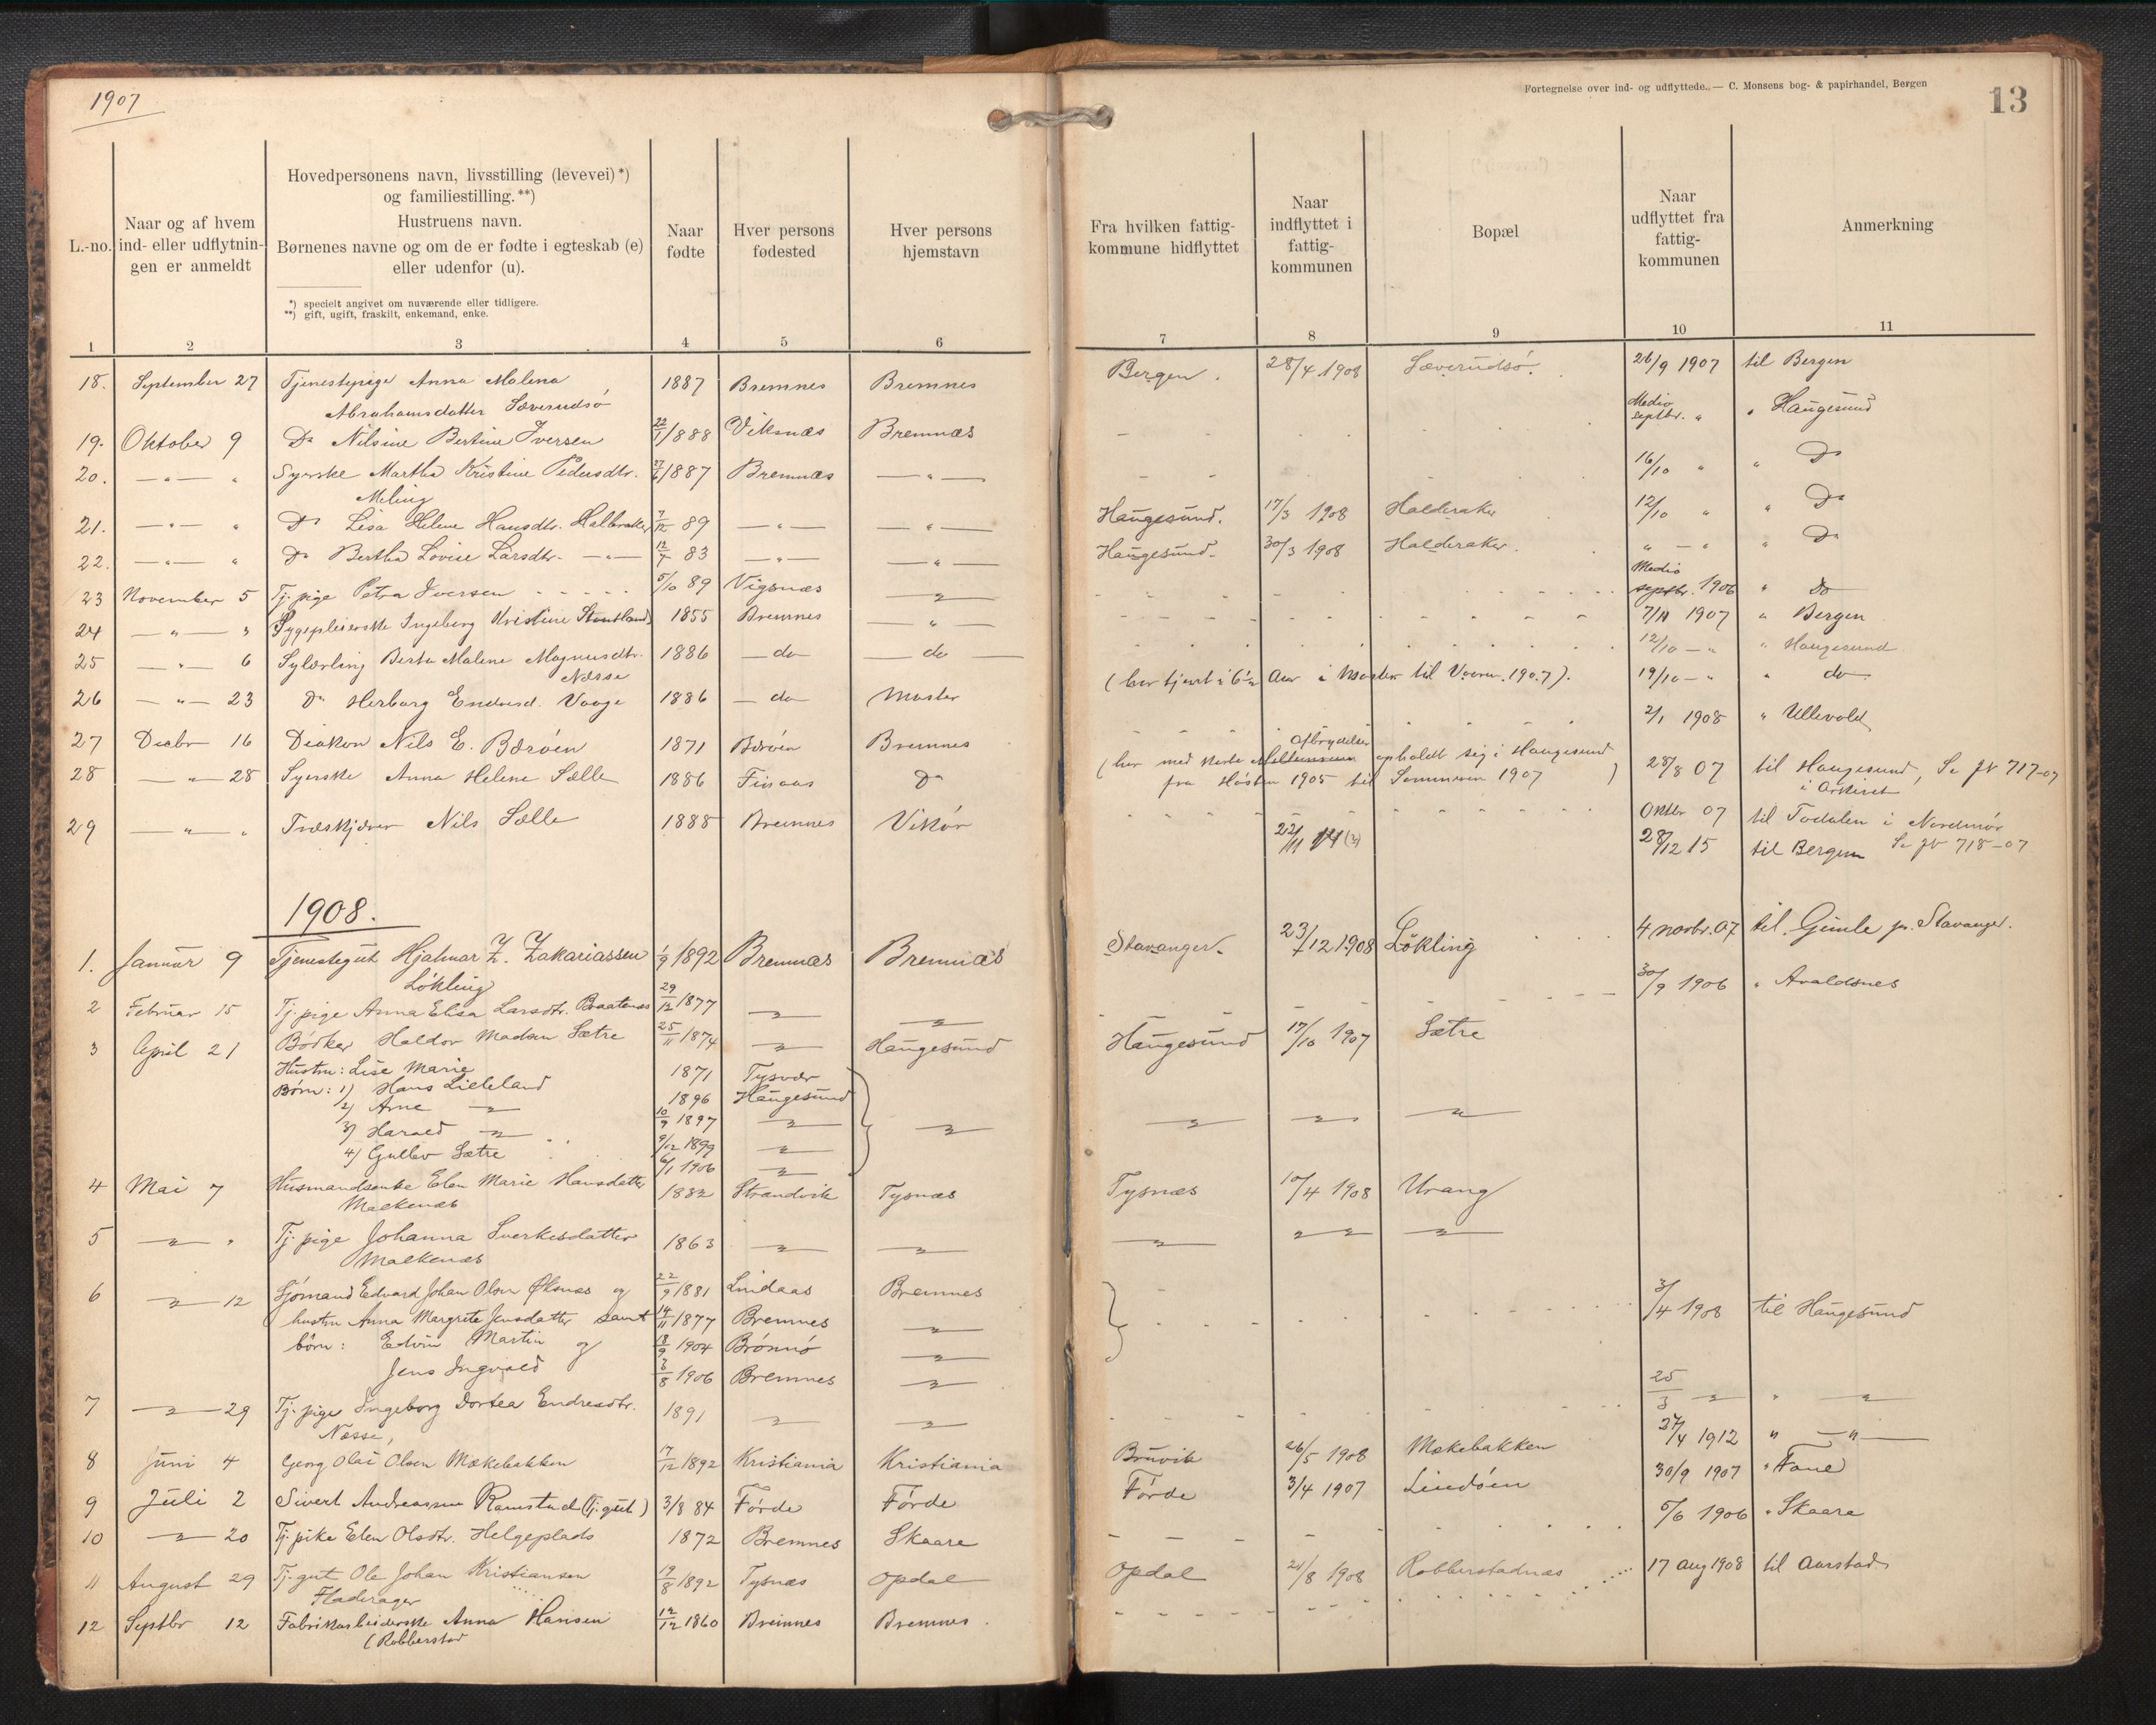 1907
Fortegnelse over ind- og udflyttede. — C. Monsens bog- & papirhandel, Bergen
13
L.-no.
Naar og af hvem
ind- eller udflytnin-
gen er anmeldt
Hovedpersonens navn, livsstilling (levevei) *)
og familiestilling. **)
Hustruens navn.
Børnenes navne og om de er fødte i egteskab (e)
eller udenfor (u).
*) specielt angivet om nuværende eller tidligere.
**) gift, ugift, fraskilt, enkemand, enke.
Naar
fødte
Hver persons
fødested
Hver persons
hjemstavn
Fra hvilken fattig-
kommune hidflyttet
Naar
indflyttet i
fattig-
kommunen
Bopæl
Naar
udflyttet fra
fattig-
kommunen
Anmerkning
1 2 3 4 5 6 7 8 9 10 11
18. September 27 Tjenestepige Anna Malena 1887 Bremnes Bremnes Bergen. 28/4 1908 Sæverudsö. 26/9 1907 til Bergen
Abrahamsdatter Sæverudsö
19. Oktober 9 Do Nilsine Bertine Iversen 22/1 1888 Viksnæs Bremnæs Medio septbr. " " Haugesund
20. — " — " Syerske Martha Kristine Pedersdtr. 27/6 1887 Bremnæs — " — 16/10 " " Do
Meling
21. — " — " Do Lisa Helene Hansdtr. Halleraker 7/12 89 — " — — " — Haugesund. 17/3 1908 Halderaker 12/10 " " Do
22. — " — " Do Bertha Lovise Larsdtr. — " — 12/7 83 — " — — " — Haugesund. 30/3 1908 Halderaker. " — " " Do
23 November 5 Tj. pige Petra Iversen 5/10 89 Vigsnæs — " — Medio septbr. 1906 " Do
24 — " — " Sygepleierske Ingeborg Kristine Stautland 1855 Bremnes — " — 7/11 1907 " Bergen
25 — " — 6 Sylærling Berta Malene Magnusdtr. 1886 — do — do — 12/10 — " " Haugesund
Næsse
26 — " — 23 Do Herborg Endresd. Vaage 1886 — do Moster (har tjent i 6½ Aar i Moster til Vaaren 1907). 19/10 — " " do
27 Decbr 16 Diakon Nils E. Bæröen 1871 Bæröen Bremnes 2/1 1908 " Ullevold
28 — " — 28 Syerske Anna Helene Sælle 1886 Finaas Do (har med korte Afbrydelser opholdt sig i Haugesund 28/8 07 til Haugesund, Se JN 717-07
fra Høsten 1905 til Sommeren 1907) i Arkivet
29 — " — " Træskjærer Nils Sælle 1888 Bremnes Vikör Oktbr 07 til Todalen i Nordmör
22/11 14 (?) 28/12 15 til Bergen Se JN 718-07
1908.
1. Januar 9 Tjenestegut Hjalmar Z. Zakariassen 1/9 1892 Bremnæs Bremnæs Stavanger. 23/12 1908 Lökling 4 novbr. 07 til Gimle pr. Stavanger.
Lökling
2 Februar 15 Tj. pige Anna Elisa Larsdtr. Braatenæs 29/12 1877 — " — — " — 30/9 1906 " Avaldsnes
3 April 21 Bödker Haldor Madsen Sætre 25/11 1874 — " — Haugesund Haugesund 17/10 1907 Sætre
Hustru: Lise Marie 1871 Tysvær
Børn: 1) Hans Lieleland 1896 Haugesund
2) Arne — " — 10/9 1897 — " — — " — — " — — " — — " —
3) Harald — " — 9/12 1899 — " —
4) Gullev Sætre 6/1 1906 — " —
4 Mai 7 Husmandsenke Elen Marie Hansdatter 1832 Strandvik Tysnæs Tysnæs 10/4 1908 Urang
Malkenæs
5 — " — " Tj. pige Johanna Sverkesdatter 1863 — " — — " — — " — " — " — " —
Malkenæs
6 — " — 12 Sjömand Edvard Johan Olsen Øknæs og 22/9 1881 Lindaas Bremnes 3/4 1908 til Haugesund
hustru Anna Margrete Jensdatter samt 14/11 1877 Bremnes — " —
børn: Edvin Martin og 18/9 1904 Brönnö — " —
Jens Ingvald 3/8 1906 Bremnes — " —
7 — " — 29 Tj. pige Ingeborg Dortea Endresdtr. 1891 — " — — " — 25/3 — " — " — " —
Næsse,
8 Juni 4 Georg Olai Olsen Mækebakken 17/12 1892 Kristiania Kristiania Bruvik 26/5 1908 Mækebakken 27/4 1912 " — " —
9 Juli 2 Sivert Andreassen Ramstad (Tj. gut) 3/8 84 Förde Förde Förde 3/4 1907 Lindöen 30/9 1907 " Fane
10 — " — 20 Tj. pike Elen Olsdtr. Helgeplads 1872 Bremnes Skaare 5/6 1906 " Skaare
11 August 29 Tj. gut Ole Johan Kristiansen 19/8 1892 Tysnæs Opdal Opdal 21/8 1908 Robberstadnæs 17 Aug 1908 til Aarstad
Fladerager
12 Septbr 12 Fabrikarbeiderske Anna Hansen 12/12 1860 Bremnes Bremnes
(Robberstad